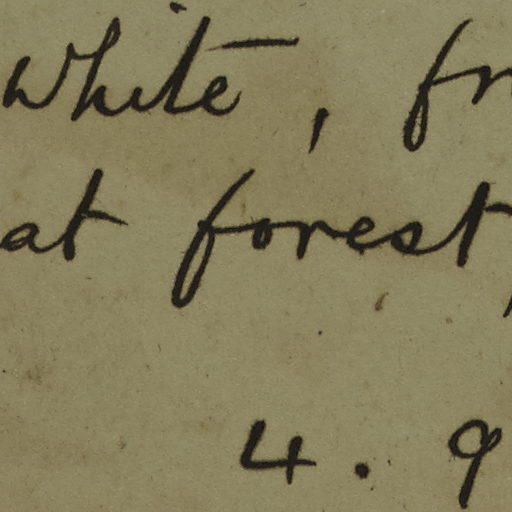 White, fr
at forest,
4. 9